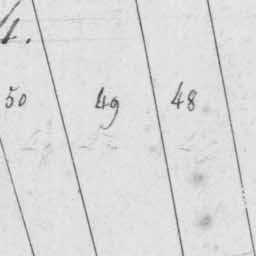 50 49 48